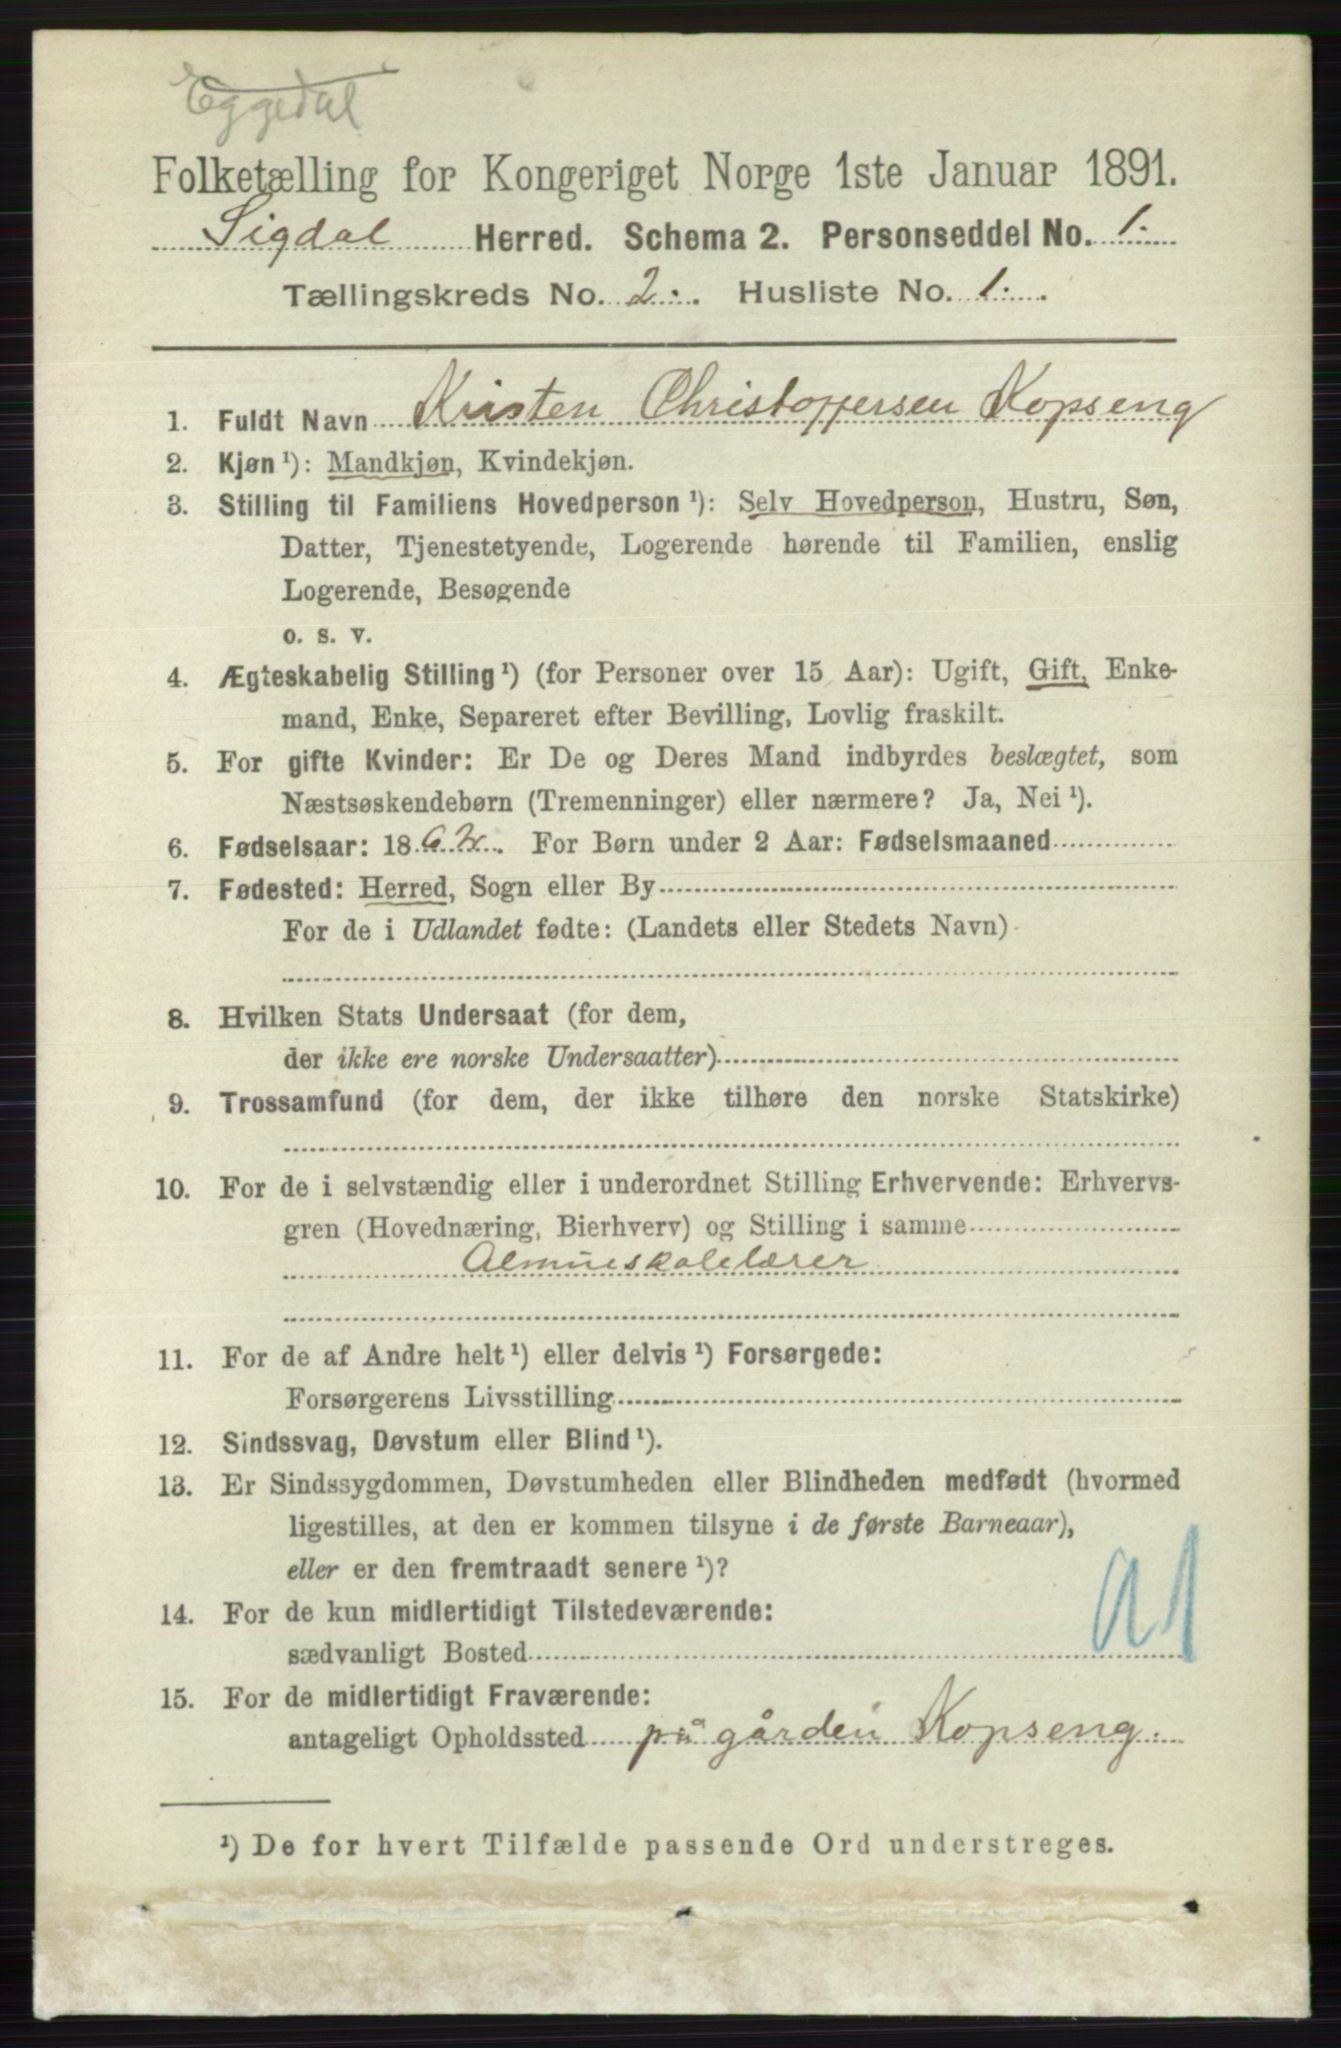 Eggedal
Folketælling for Kongeriget Norge 1ste Januar 1891.
Sigdal Herred. Schema 2. Personseddel No. 1.
Tællingskreds No. 2. Husliste No. 1.
1. Fuldt Navn Kristen Christoffersen Kopseng
2. Kjøn¹): Mandkjøn, Kvindekjøn.
3. Stilling til Familiens Hovedperson¹): Selv Hovedperson, Hustru, Søn,
Datter, Tjenestetyende, Logerende hørende til Familien, enslig
Logerende, Besøgende
o. s. v.
4. Ægteskabelig Stilling¹) (for Personer over 15 Aar): Ugift, Gift, Enke-
mand, Enke, Separeret efter Bevilling, Lovlig fraskilt.
5. For gifte Kvinder: Er De og Deres Mand indbyrdes beslægtet, som
Næstsøskendebørn (Tremenninger) eller nærmere? Ja, Nei¹).
6. Fødselsaar: 18 For Børn under 2 Aar: Fødselsmaaned
7. Fødested: Herred, Sogn eller By
For de i Udlandet fødte: (Landets eller Stedets Navn)
8. Hvilken Stats Undersaat (for dem,
der ikke ere norske Undersaatter)
9. Trossamfund (for dem, der ikke tilhøre den norske Statskirke)
10. For de i selvstændig eller i underordnet Stilling Erhvervende: Erhvervs-
gren (Hovednæring, Bierhverv) og Stilling i samme
Almueskolelærer
11. For de af Andre helt¹) eller delvis¹) Forsørgede:
Forsørgerens Livsstilling
12. Sindssvag, Døvstum eller Blind¹).
13. Er Sindssygdommen, Døvstumheden eller Blindheden medfødt (hvormed
ligestilles, at den er kommen tilsyne i de første Barneaar),
eller er den fremtraadt senere¹)?
14. For de kun midlertidigt Tilstedeværende:
sædvanligt Bosted
15. For de midlertidigt Fraværende:
antageligt Opholdssted på gården Kopseng.
¹) De for hvert Tilfælde passende Ord understreges.